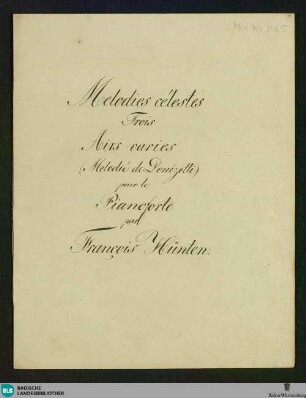 Melodies célestes
Trois
Airs variés
(Melodie de Donizetti)
pour le
Pianoforte
par
François Hünten.
BLB BADISCHE
LANDESBIBLIOTHEK
Baden-Württemberg